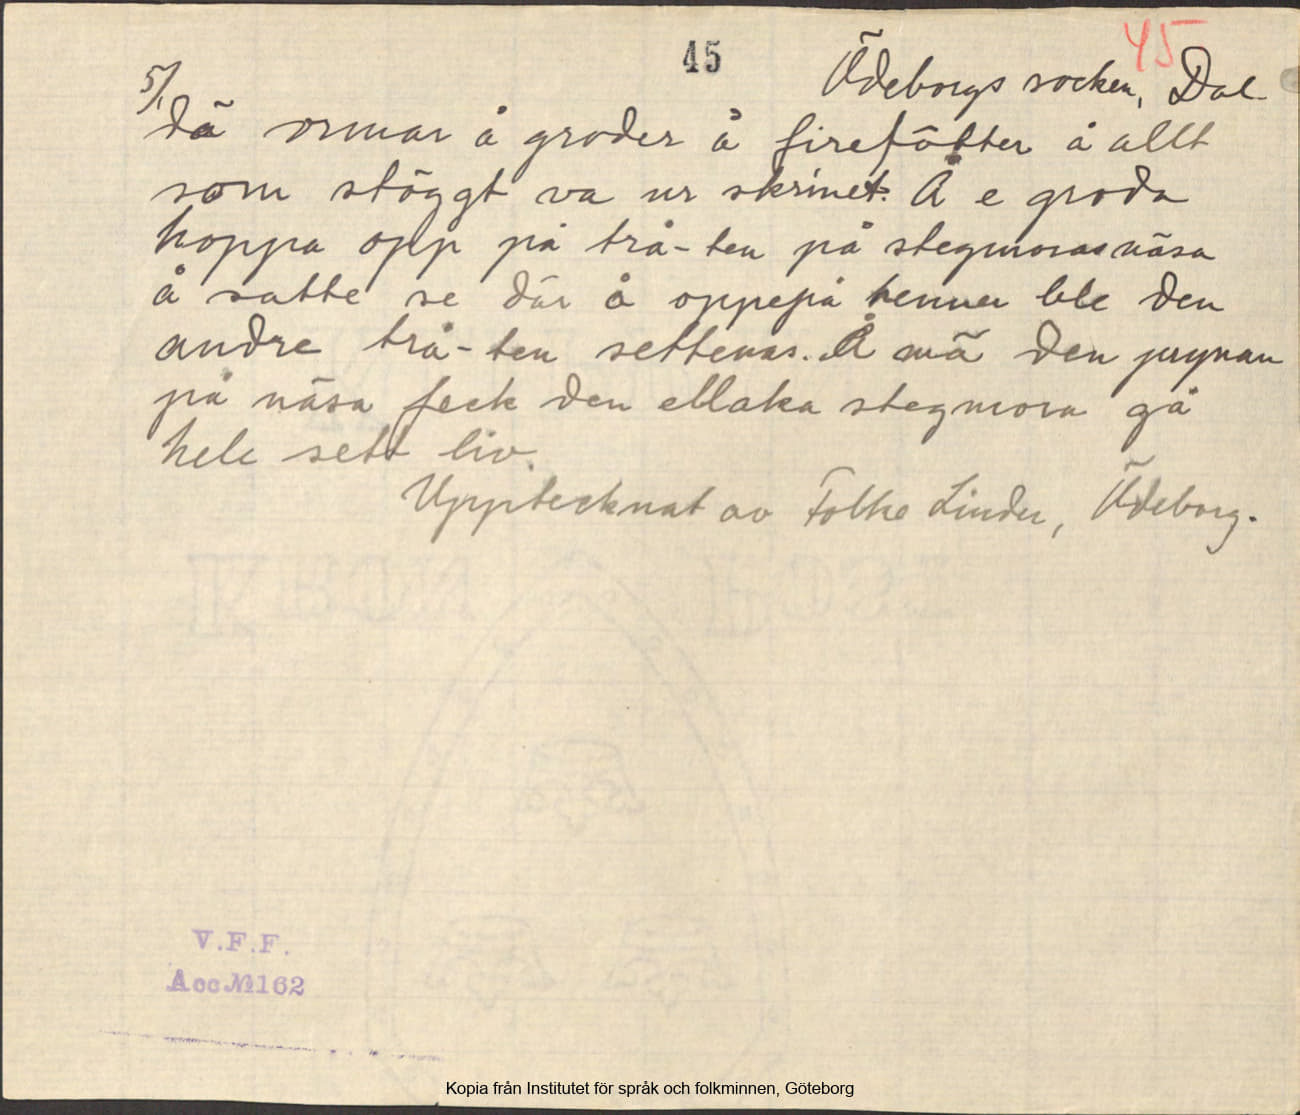 45
45
Ödeborgs socken, Dal
5/1
dä ormar å groder å firefötter å allt
som stöggt va ur skrinet. Å e groda
hoppa opp på trå-ten på stegmoras näsa
å satte se där å oppepå henner ble den
andre trå-ten settenas. Å mä den prynan
på näsa feck den ellaka stegmora gå
hele sett liv.
Upptecknat av Folke Linder, Ödeborg.
V.F.F.
Acc № 162
Kopia från Institutet för språk och folkminnen, Göteborg